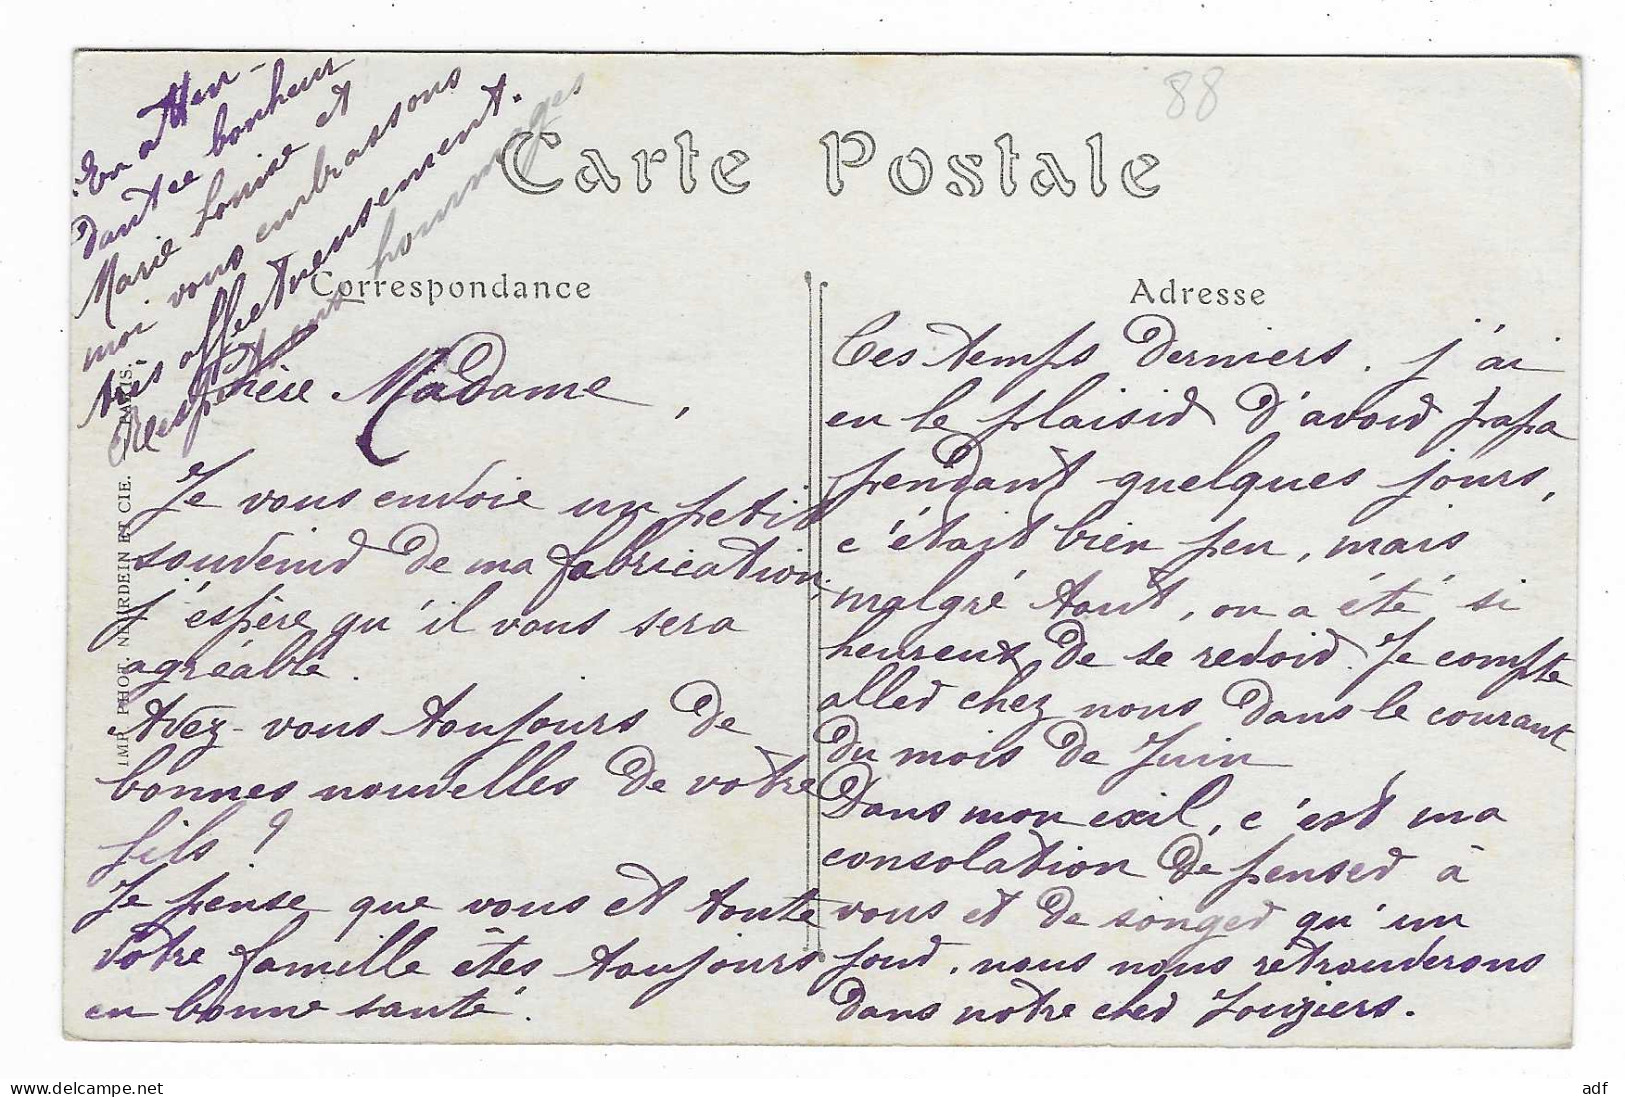 88
Carte Postale
Correspondance
Adresse
IMP. PHOT. NEURDEIN ET CIE. PARIS.
Chère Madame,
Je vous envoie un petit
souvenir de ma fabrication,
j'espère qu'il vous sera
agréable.
Avez-vous toujours de
bonnes nouvelles de votre
fils?
Je pense que vous et toute
votre famille êtes toujours
en bonne santé.
Ces temps derniers, j'ai
eu le plaisir d'avoir papa
pendant quelques jours,
c'était bien peu, mais
malgré tout, on a été si
heureux de se revoir. Je compte
aller chez nous dans le courant
du mois de Juin.
Dans mon exil, c'est ma
consolation de penser à
vous et de songer qu'un
jour, nous nous retrouverons
dans notre cher
En atten-
dant ce bonheur
Marie Louise et
moi vous embrassons
très affectueusement.
Respectueux hommages
adf